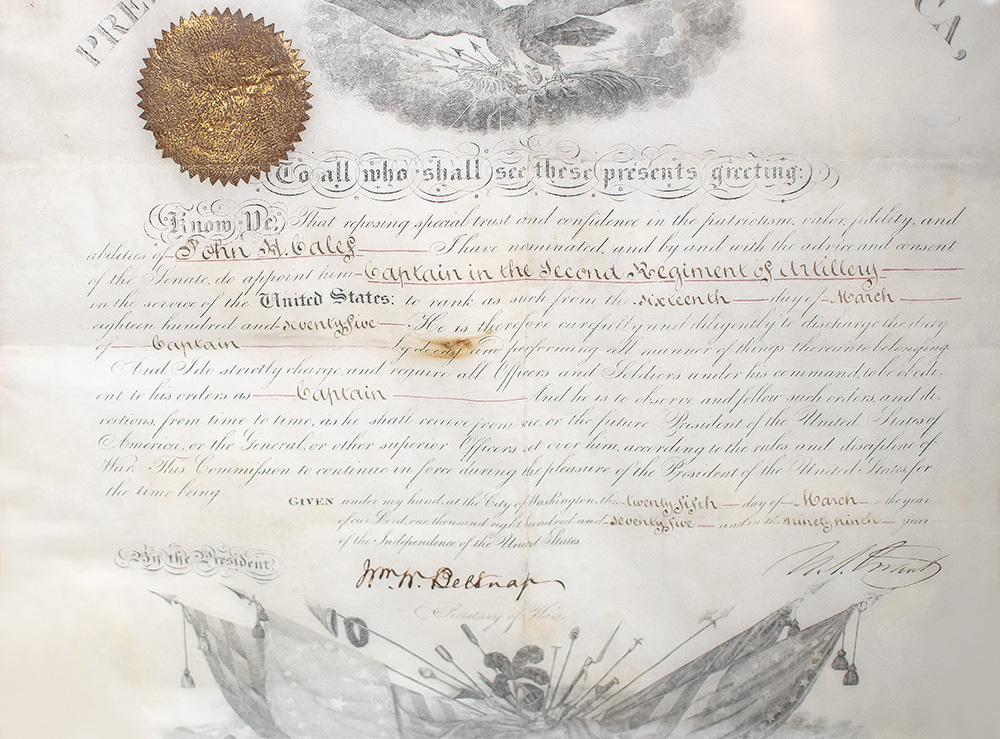 PRE
CA,
To all who shall see these presents greeting:
Know Ye, That reposing special trust and confidence in the patriotism, valor, fidelity, and
abilities of John H. Calef I have nominated, and by and with the advice and consent
of the Senate, do appoint him Captain in the Second Regiment of Artillery
in the service of the United States: to rank as such from the sixteenth day of March
eighteen hundred and seventy five He is therefore carefully and diligently to discharge the duty
of Captain by doing and performing all manner of things thereunto belonging.
And I do strictly charge, and require all Officers and Soldiers under his command, to be obedi-
ent to his orders as Captain And he is to observe and follow such orders, and di-
rections, from time to time, as he shall receive from me, or the future President of the United States of
America, or the General, or other superior Officers set over him, according to the rules and discipline of
War. This Commission to continue in force during the pleasure of the President of the United States, for
the time being.
GIVEN under my hand, at the City of Washington, this twenty fifth day of March in the year
of our Lord, one thousand eight hundred and seventy five and in the ninety ninth year
of the Independence of the United States.
By the President
U. S. Grant
Wm. W. Belknap
Secretary of War.